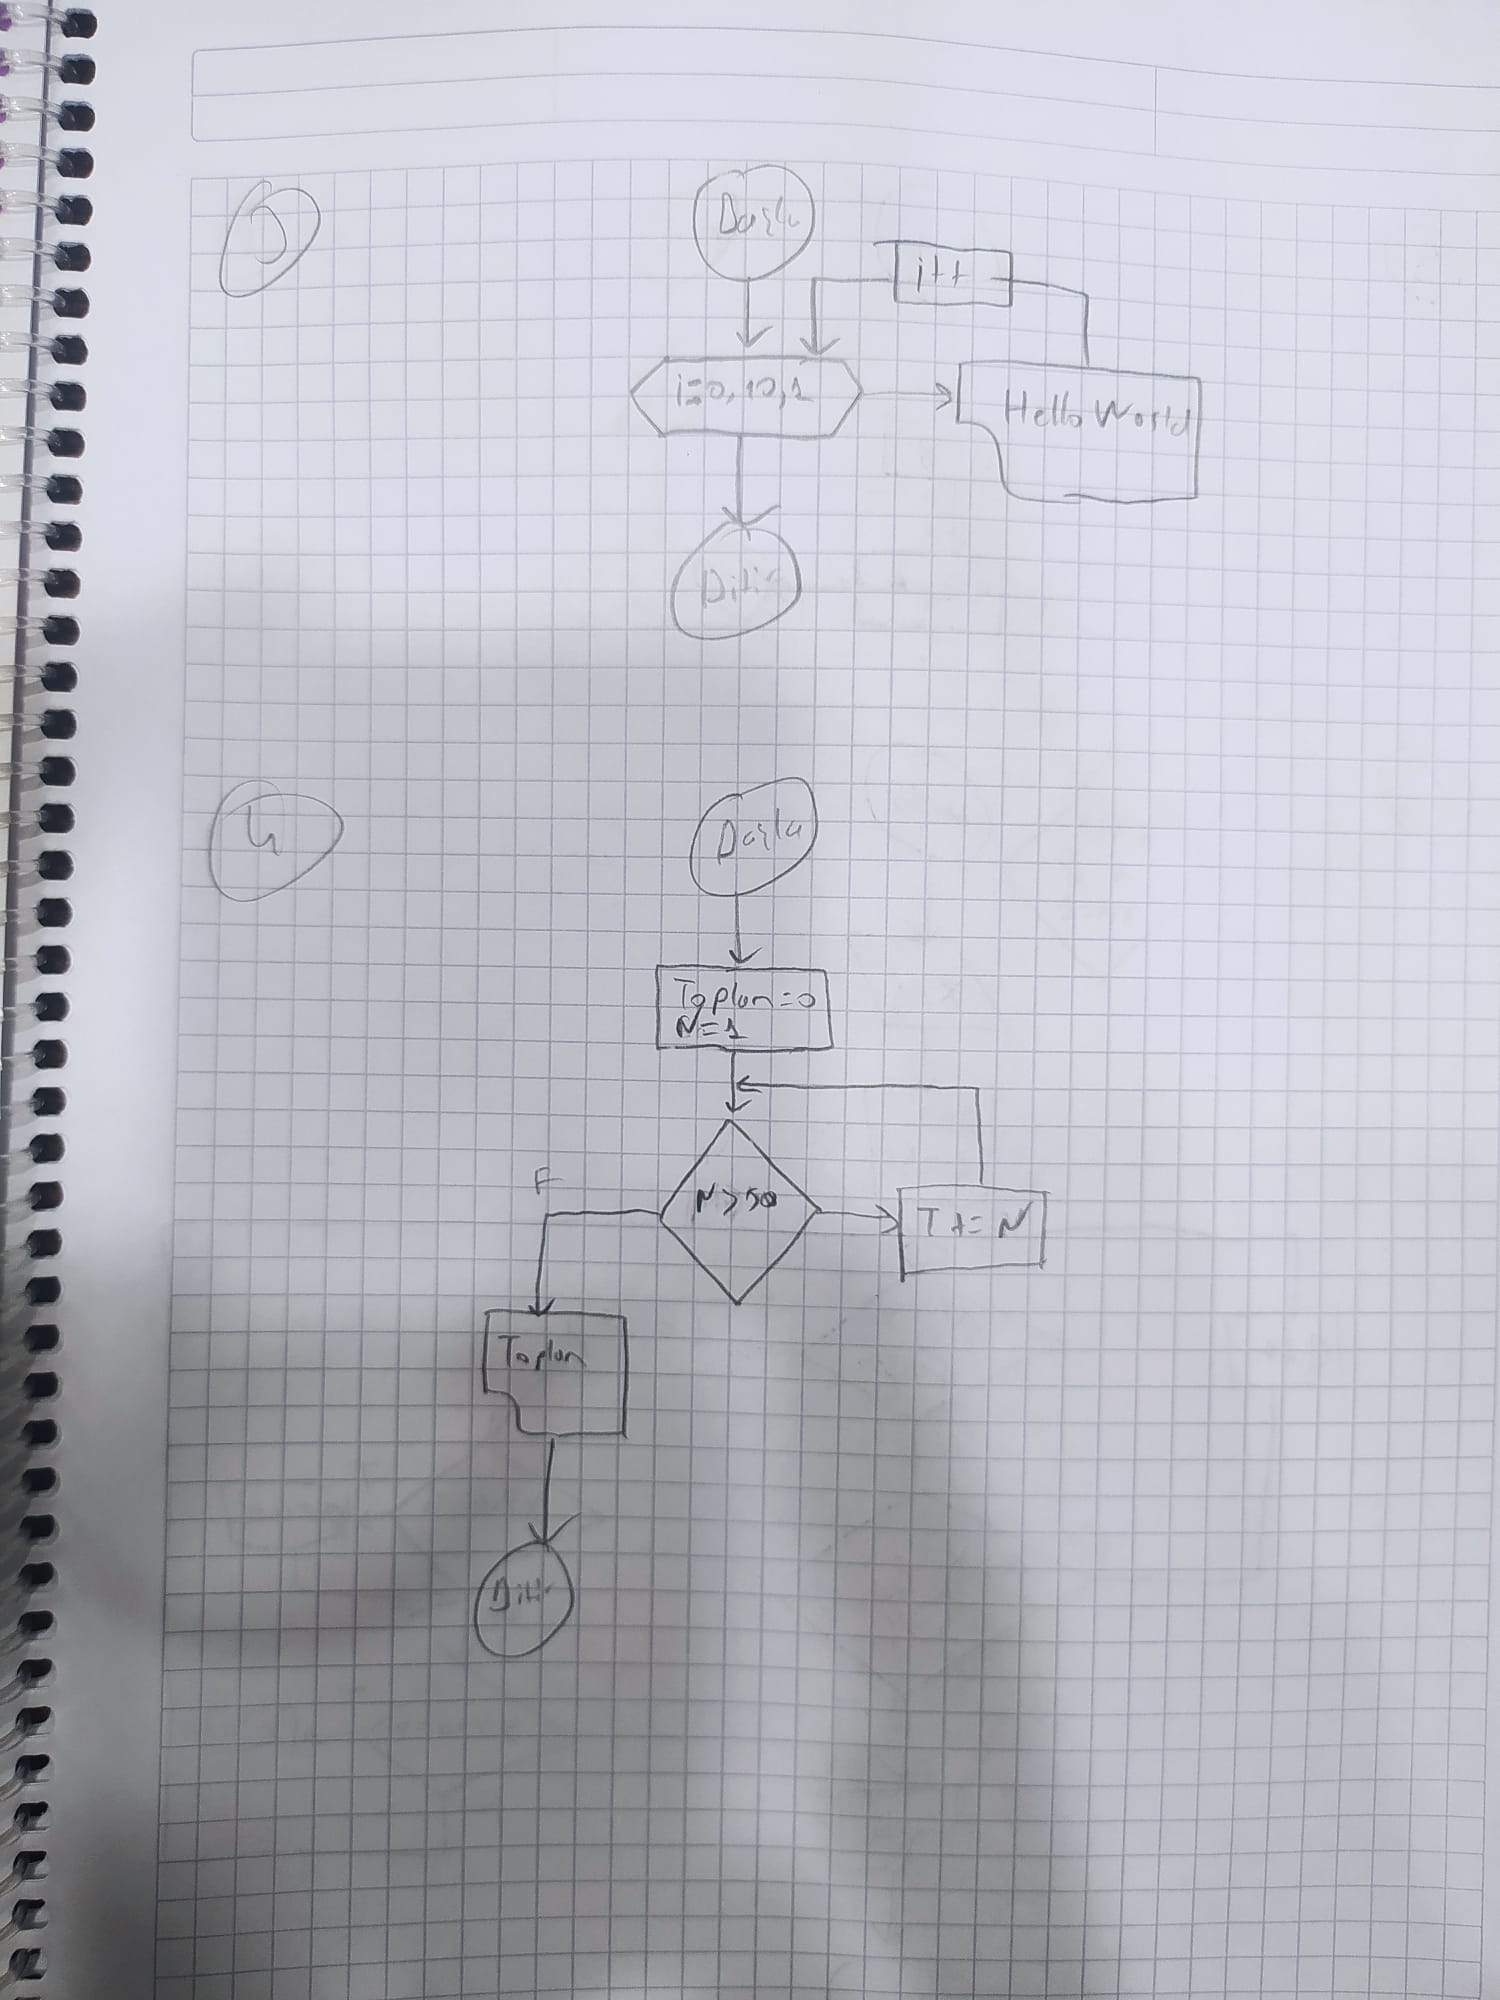 3
Başla
i++
i=0,10,1
Hello World
Bitir
4
Başla
Toplam=0
N=1
F
N>50
T += N
Toplam
Bitir